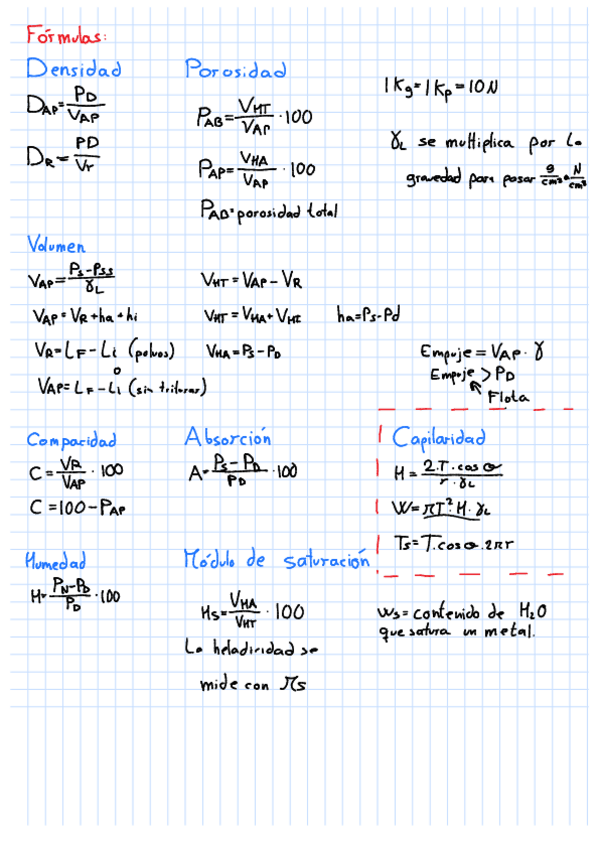 Fórmulas:
Densidad
D_AP = P_D / V_AP
D_R = PD / Vr
Porosidad
P_AB = V_HT / V_AP · 100
P_AP = V_HA / V_AP · 100
P_AB = porosidad total
1 Kg = 1 Kp = 10 N
γ_L se multiplica por la
gravedad para pasar g/cm³ a N/cm³
Volumen
V_AP = (P_S - P_SS) / γ_L
V_AP = V_R + ha + hi
V_R = L_F - Li (polvos)
o
V_AP = L_F - Li (sin triturar)
V_HT = V_AP - V_R
V_HT = V_HA + V_HI
V_HA = P_S - P_D
ha = Ps - Pd
Empuje = V_AP · γ
Empuje > P_D
Flota
Compacidad
C = V_R / V_AP · 100
C = 100 - P_AP
Absorción
A = (P_S - P_D) / P_D · 100
Capilaridad
H = 2·T·cos θ / r·γ_L
W = πT²·H·γ_L
Ts = T·cos θ·2πr
Humedad
H = (P_N - P_D) / P_D · 100
Módulo de saturación
Ms = V_HA / V_HT · 100
La heladicidad se
mide con Ms
Ws = contenido de H2O
que satura un metal.